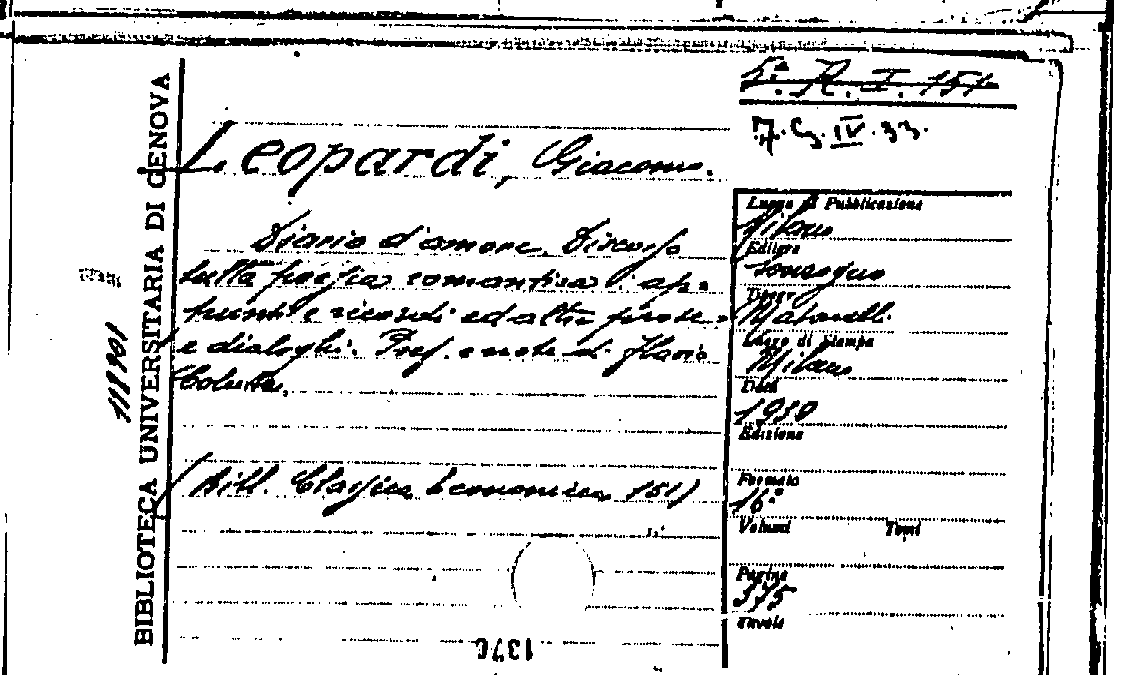 5.ª R. I. 151
7. G. IV. 33.
Leopardi, Giacomo.
Diario d'amore. Discorso
sulla poesia romantica. ap-
punti e ricordi ed altre prose
e dialoghi. Pref. e note di Flavio
Colutta.
(Bibl. Classica Economica, 151)
Luogo di Pubblicazione
Milano
Editore
Sonzogno
Tipogr.
Matarelli
Luogo di Stampa
Milano
Data
1910
Edizione
Formato
16º
Volumi Tomi
Pagine
375
Tavole
BIBLIOTECA UNIVERSITARIA DI GENOVA
1370